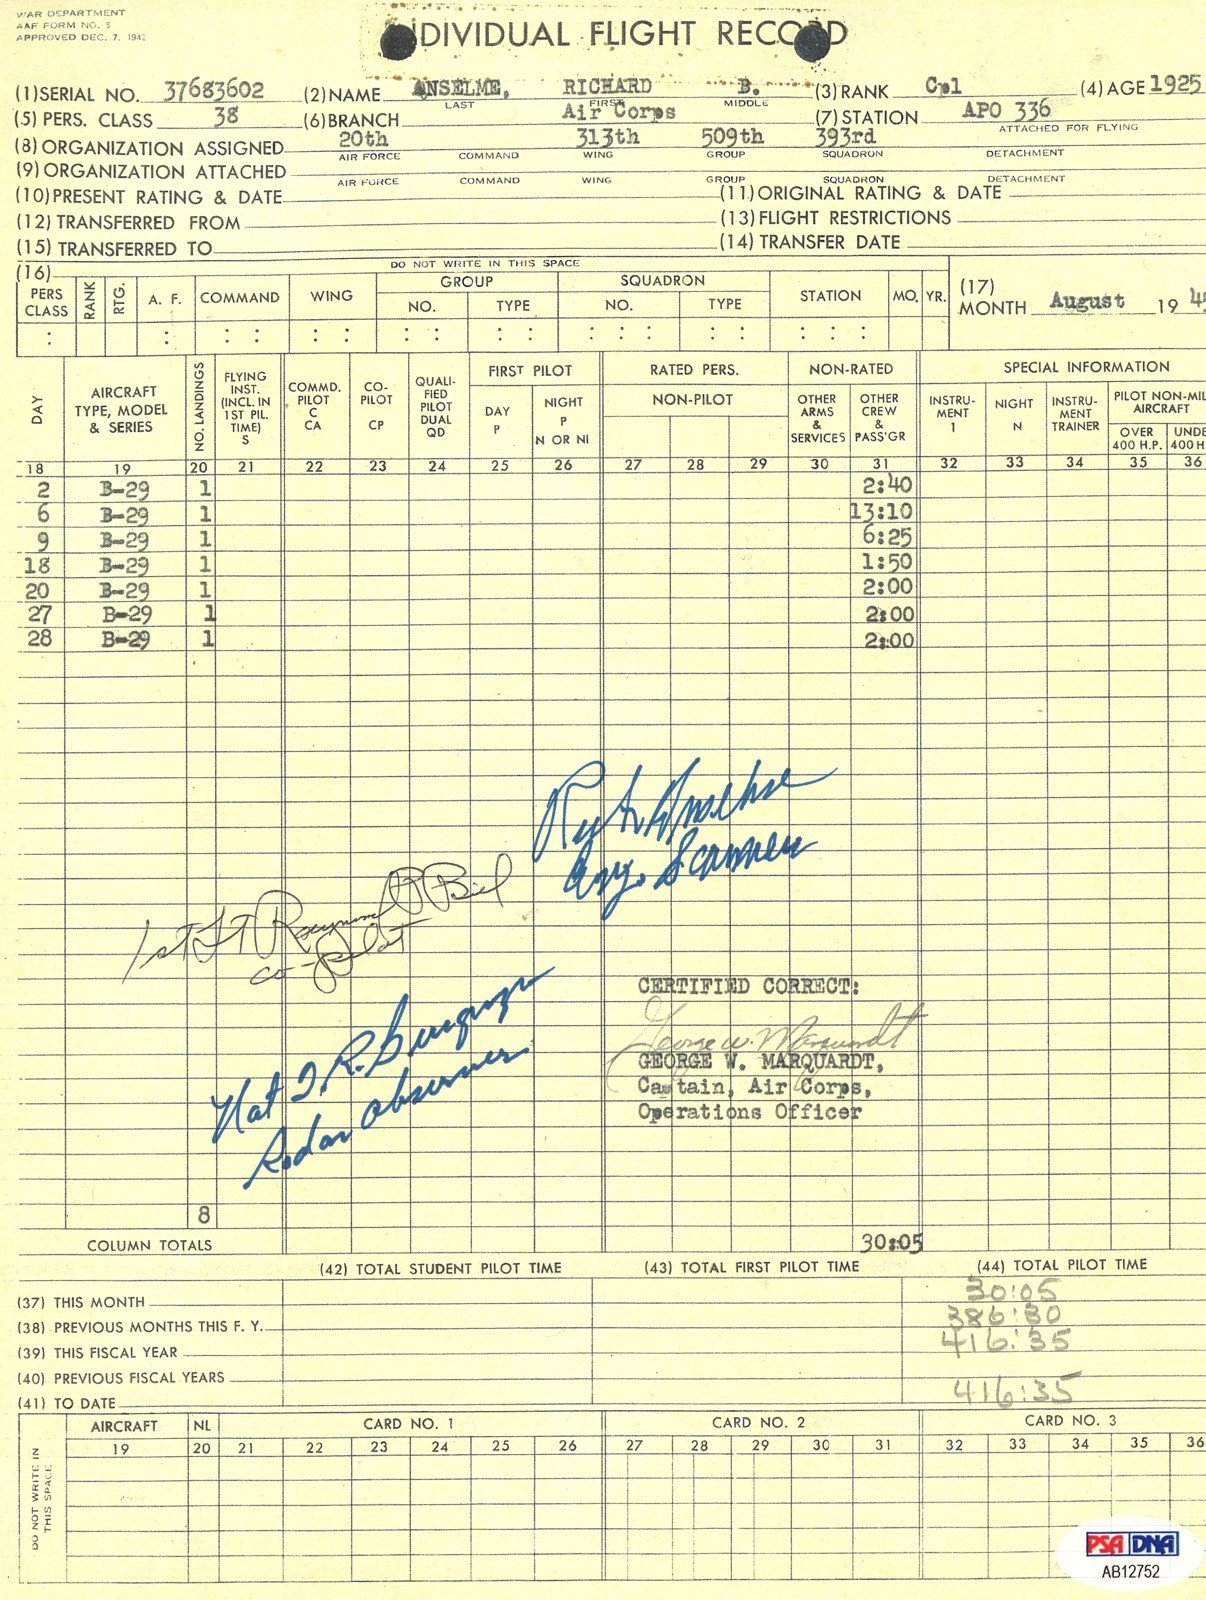 WAR DEPARTMENT
AAF FORM NO. 5
APPROVED DEC. 7, 1942
INDIVIDUAL FLIGHT RECORD
(1) SERIAL NO. 37683602 (2) NAME ANSELME, RICHARD B. (3) RANK Cpl (4) AGE 1925
LAST FIRST MIDDLE
(5) PERS. CLASS 38 (6) BRANCH Air Corps (7) STATION APO 336
ATTACHED FOR FLYING
(8) ORGANIZATION ASSIGNED 20th 313th 509th 393rd
AIR FORCE COMMAND WING GROUP SQUADRON DETACHMENT
(9) ORGANIZATION ATTACHED
AIR FORCE COMMAND WING GROUP SQUADRON DETACHMENT
(10) PRESENT RATING & DATE (11) ORIGINAL RATING & DATE
(12) TRANSFERRED FROM (13) FLIGHT RESTRICTIONS
(15) TRANSFERRED TO (14) TRANSFER DATE
DO NOT WRITE IN THIS SPACE
(16) PERS CLASS RANK RTG. A. F. COMMAND WING GROUP NO. TYPE SQUADRON NO. TYPE STATION MO. YR. (17) MONTH August 19
DAY AIRCRAFT TYPE, MODEL & SERIES NO. LANDINGS FLYING INST. (INCL. IN 1ST PIL. TIME) S COMMD. PILOT C CA CO-PILOT CP QUALI-FIED PILOT DUAL QD FIRST PILOT DAY P NIGHT P N OR NI RATED PERS. NON-PILOT NON-RATED OTHER ARMS & SERVICES OTHER CREW & PASS'GR SPECIAL INFORMATION INSTRU-MENT 1 NIGHT N INSTRU-MENT TRAINER PILOT NON-MIL AIRCRAFT OVER 400 H.P. UNDE 400 H
18 19 20 21 22 23 24 25 26 27 28 29 30 31 32 33 34 35 36
2 B-29 1 2:40
6 B-29 1 13:10
9 B-29 1 6:25
18 B-29 1 1:50
20 B-29 1 2:00
27 B-29 1 2:00
28 B-29 1 2:00
Anselme
Eng. Scanner
1st LT Raymond P Biel
co-pilot
Nat T R. Bergmann
Radar observer
CERTIFIED CORRECT:
George W. Marquardt
GEORGE W. MARQUARDT,
Captain, Air Corps,
Operations Officer
8
COLUMN TOTALS 30:05
(42) TOTAL STUDENT PILOT TIME (43) TOTAL FIRST PILOT TIME (44) TOTAL PILOT TIME
(37) THIS MONTH 30:05
(38) PREVIOUS MONTHS THIS F. Y. 386:30
(39) THIS FISCAL YEAR 416:35
(40) PREVIOUS FISCAL YEARS
(41) TO DATE 416:35
AIRCRAFT NL CARD NO. 1 CARD NO. 2 CARD NO. 3
19 20 21 22 23 24 25 26 27 28 29 30 31 32 33 34 35 36
DO NOT WRITE IN THIS SPACE
PSA DNA
AB12752